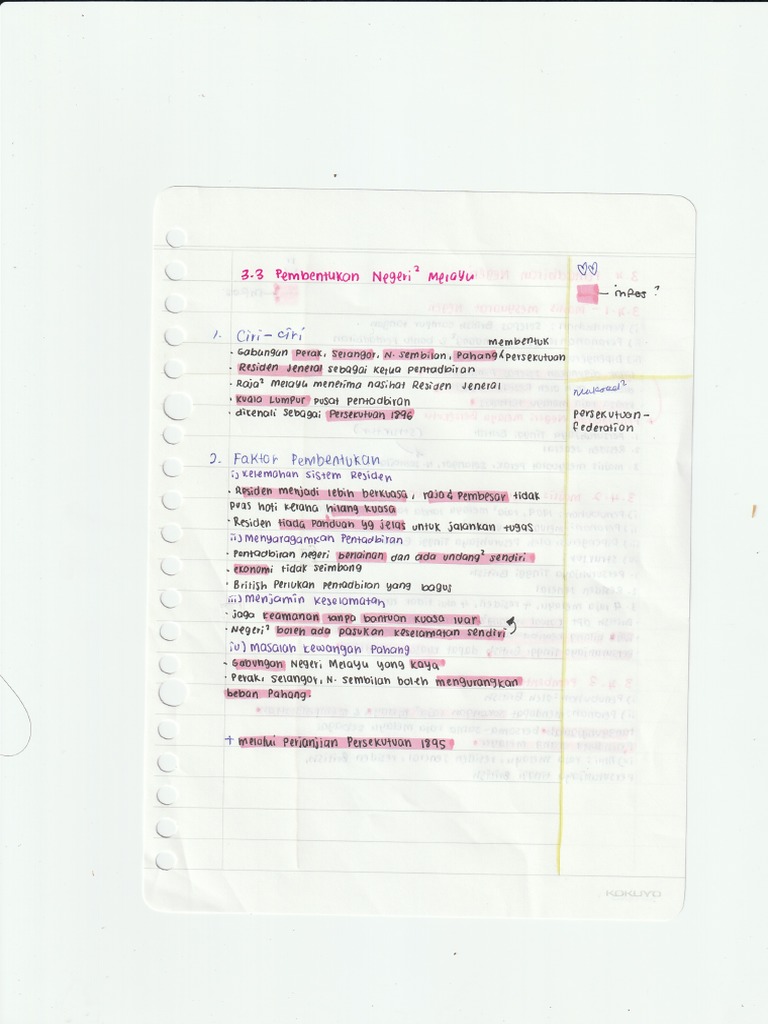 3.3 Pembentukan Negeri² Melayu
♡♡
— infos?
1. Ciri-ciri
membentuk
· Gabungan Perak, Selangor, N. Sembilan, Pahang persekutuan
· Residen Jeneral sebagai ketua pentadbiran
· Raja² Melayu menerima nasihat Residen Jeneral
· Kuala Lumpur pusat pentadbiran
· dikenali sebagai Persekutuan 1896
Maksud²
persekutuan-
federation
2. Faktor Pembentukan
i) Kelemahan Sistem Residen
· Residen menjadi lebih berkuasa, raja & pembesar tidak
puas hati kerana hilang kuasa
· Residen tiada panduan yg jelas untuk jalankan tugas
ii) Menyaragamkan Pentadbiran
· Pentadbiran negeri berlainan dan ada undang² sendiri
· ekonomi tidak seimbang
· British perlukan pentadbiran yang bagus
iii) Menjamin keselamatan
· jaga keamanan tanpa bantuan kuasa luar
· Negeri² boleh ada pasukan keselamatan sendiri
iv) Masalah kewangan Pahang
· Gabungan Negeri Melayu yang kaya
· Perak, Selangor, N. Sembilan boleh mengurangkan
beban Pahang.
+ melalui Perjanjian Persekutuan 1895
KOKUYO